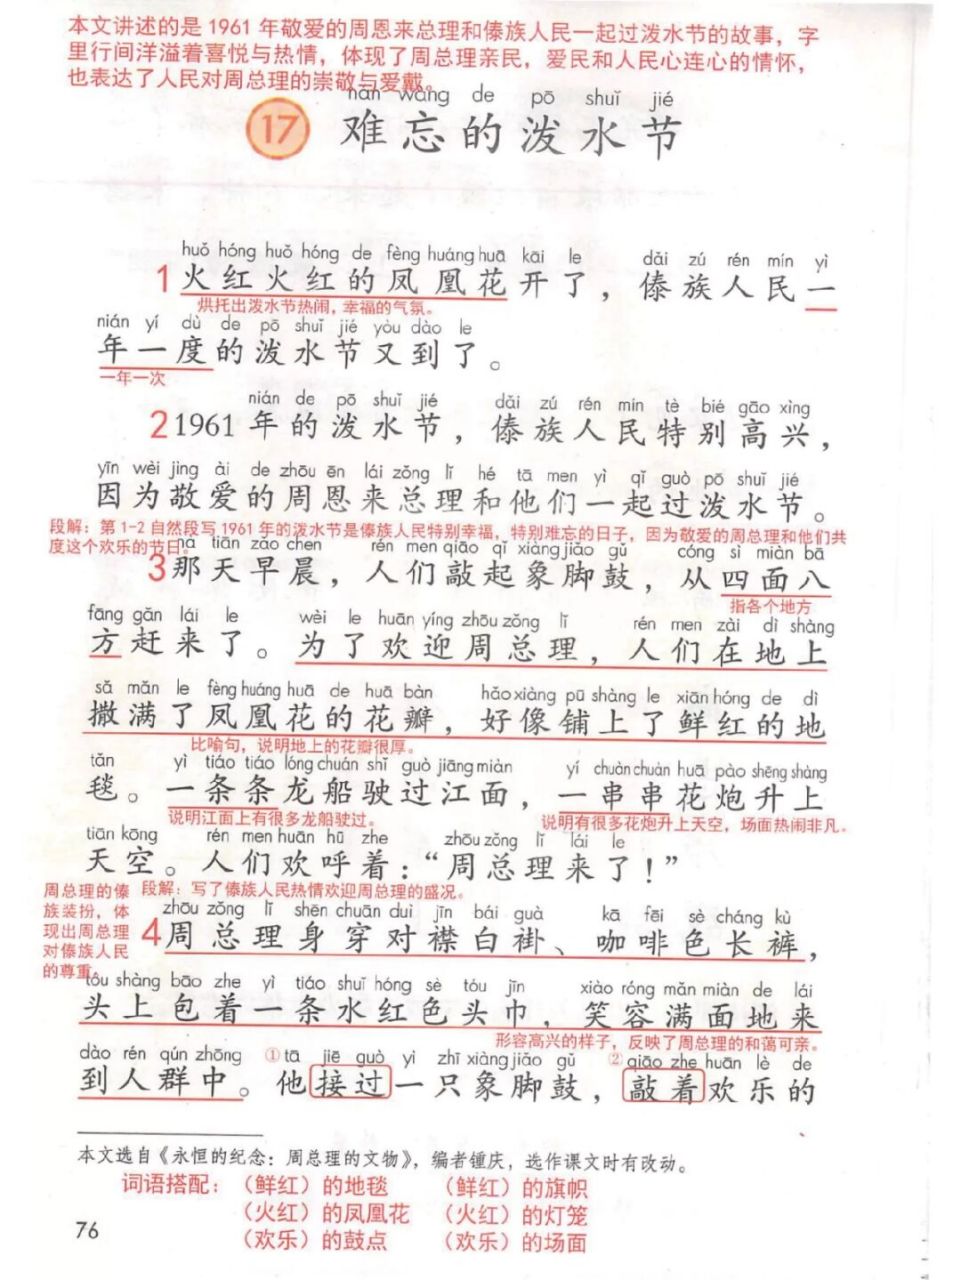 本文讲述的是1961年敬爱的周恩来总理和傣族人民一起过泼水节的故事，字
里行间洋溢着喜悦与热情，体现了周总理亲民，爱民和人民心连心的情怀，
也表达了人民对周总理的崇敬与爱戴。
nán wàng de pō shuǐ jié
17 难忘的泼水节
huǒ hóng huǒ hóng de fèng huáng huā kāi le dǎi zú rén mín yì
1 火红火红的凤凰花开了，傣族人民一
烘托出泼水节热闹，幸福的气氛。
nián yí dù de pō shuǐ jié yòu dào le
年一度的泼水节又到了。
一年一次
nián de pō shuǐ jié dǎi zú rén mín tè bié gāo xìng
2 1961年的泼水节，傣族人民特别高兴，
yīn wèi jìng ài de zhōu ēn lái zǒng lǐ hé tā men yì qǐ guò pō shuǐ jié
因为敬爱的周恩来总理和他们一起过泼水节。
段解：第1-2自然段写1961年的泼水节是傣族人民特别幸福，特别难忘的日子，因为敬爱的周总理和他们共
度这个欢乐的节日。
nà tiān zǎo chen rén men qiāo qǐ xiàng jiǎo gǔ cóng sì miàn bā
3 那天早晨，人们敲起象脚鼓，从四面八
指各个地方
fāng gǎn lái le wèi le huān yíng zhōu zǒng lǐ rén men zài dì shàng
方赶来了。为了欢迎周总理，人们在地上
sǎ mǎn le fèng huáng huā de huā bàn hǎo xiàng pū shàng le xiān hóng de dì
撒满了凤凰花的花瓣，好像铺上了鲜红的地
比喻句，说明地上的花瓣很厚。
tǎn yì tiáo tiáo lóng chuán shǐ guò jiāng miàn yí chuàn chuàn huā pào shēng shàng
毯。一条条龙船驶过江面，一串串花炮升上
说明江面上有很多龙船驶过。 说明有很多花炮升上天空，场面热闹非凡。
tiān kōng rén men huān hū zhe zhōu zǒng lǐ lái le
天空。人们欢呼着：“周总理来了！”
段解：写了傣族人民热情欢迎周总理的盛况。
周总理的傣
族装扮，体
现出周总理
对傣族人民
的尊重。
zhōu zǒng lǐ shēn chuān duì jīn bái guà kā fēi sè cháng kù
4 周总理身穿对襟白褂、咖啡色长裤，
tóu shàng bāo zhe yì tiáo shuǐ hóng sè tóu jīn xiào róng mǎn miàn de lái
头上包着一条水红色头巾，笑容满面地来
形容高兴的样子，反映了周总理的和蔼可亲。
dào rén qún zhōng ①tā jiē guò yì zhī xiàng jiǎo gǔ ②qiāo zhe huān lè de
到人群中。他接过一只象脚鼓，敲着欢乐的
本文选自《永恒的纪念：周总理的文物》，编者锺庆，选作课文时有改动。
词语搭配：（鲜红）的地毯 （鲜红）的旗帜
（火红）的凤凰花 （火红）的灯笼
（欢乐）的鼓点 （欢乐）的场面
76